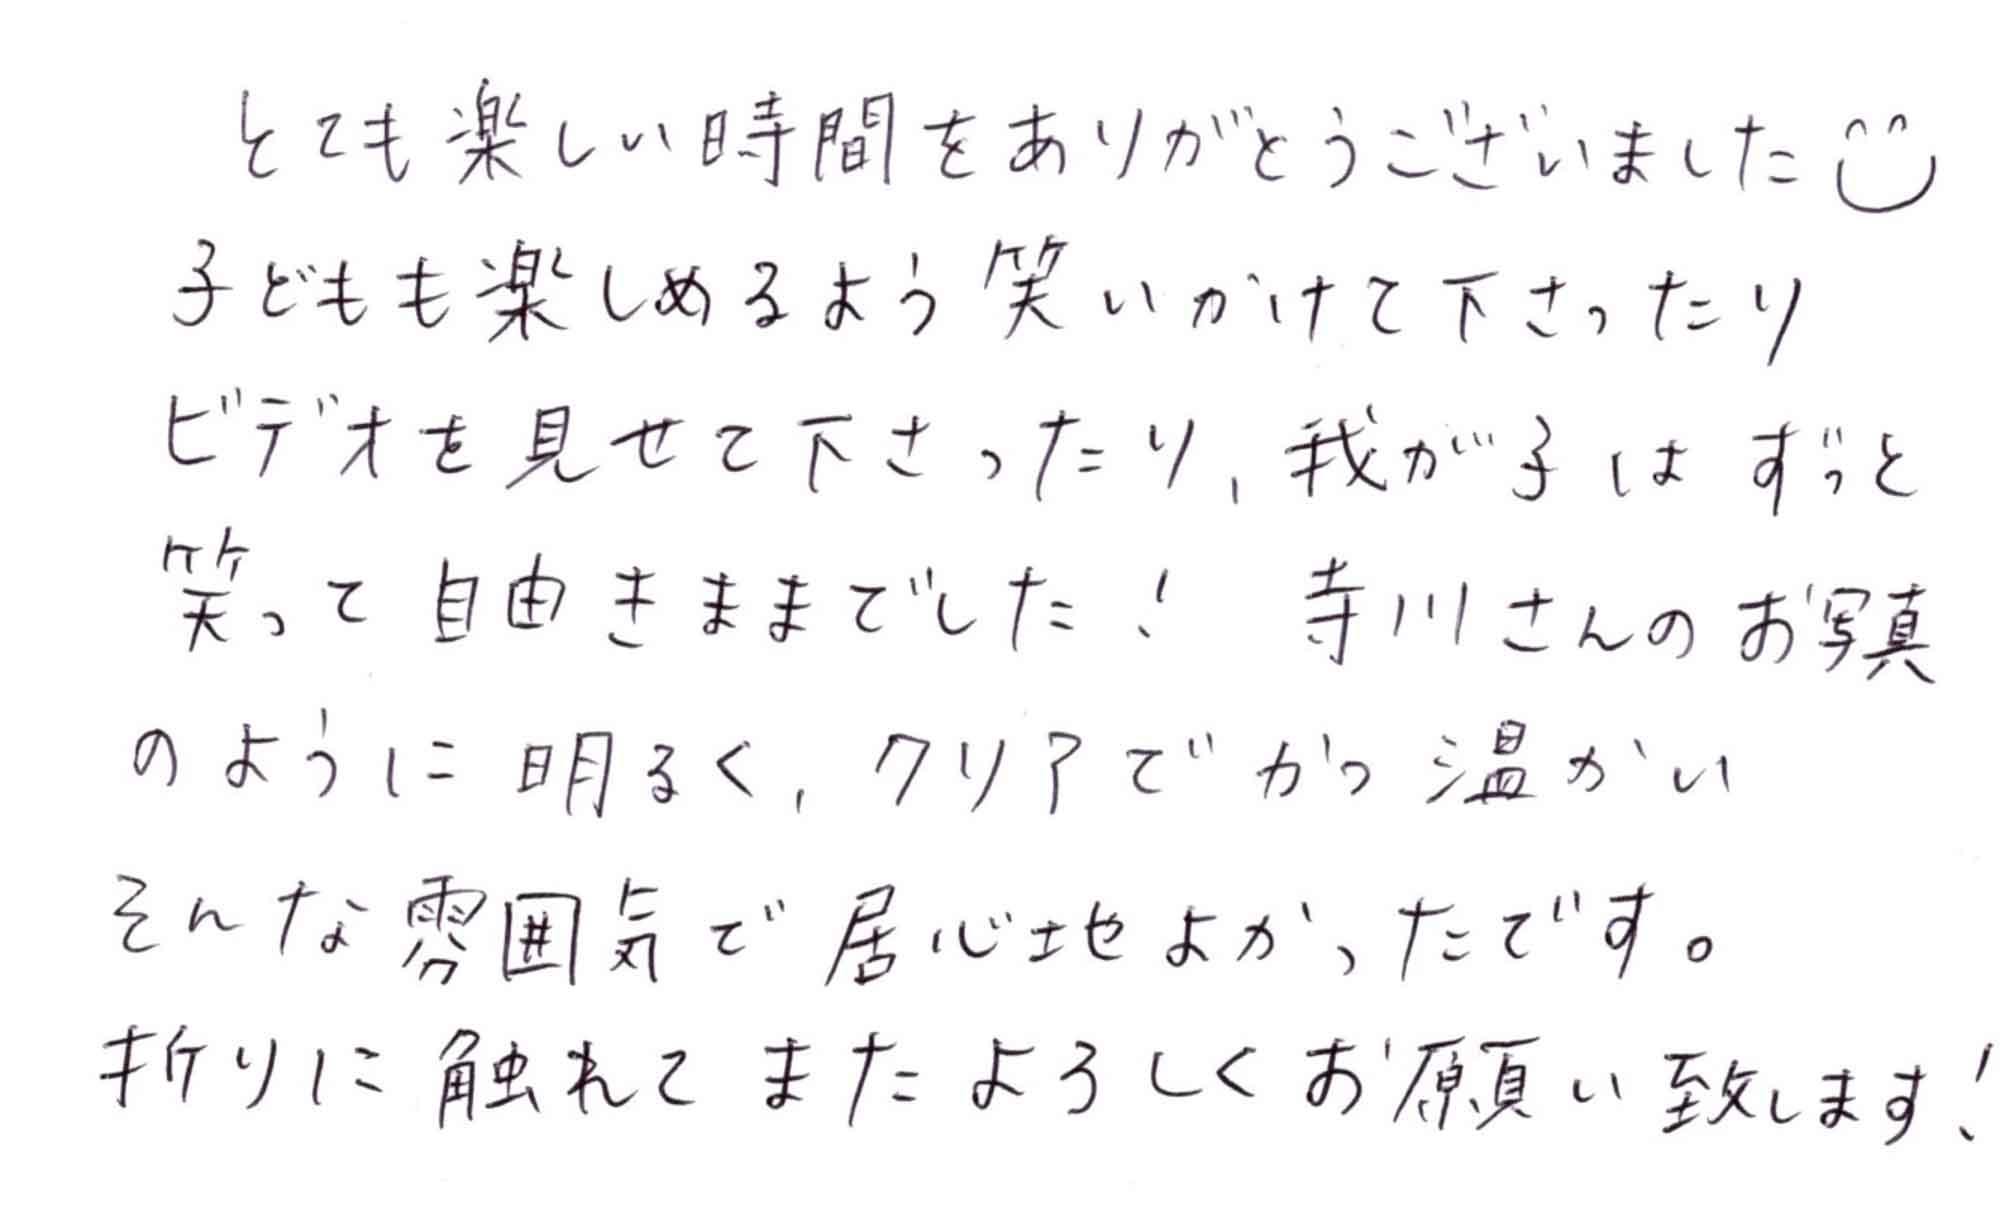 とても楽しい時間をありがとうございました
子どもも楽しめるよう笑いかけて下さったり
ビデオを見せて下さったり、我が子はずっと
笑って自由きままでした! 寺川さんのお写真
のように明るく、クリアでかつ温かい
そんな雰囲気で居心地よかったです。
折りに触れてまたよろしくお願い致します!